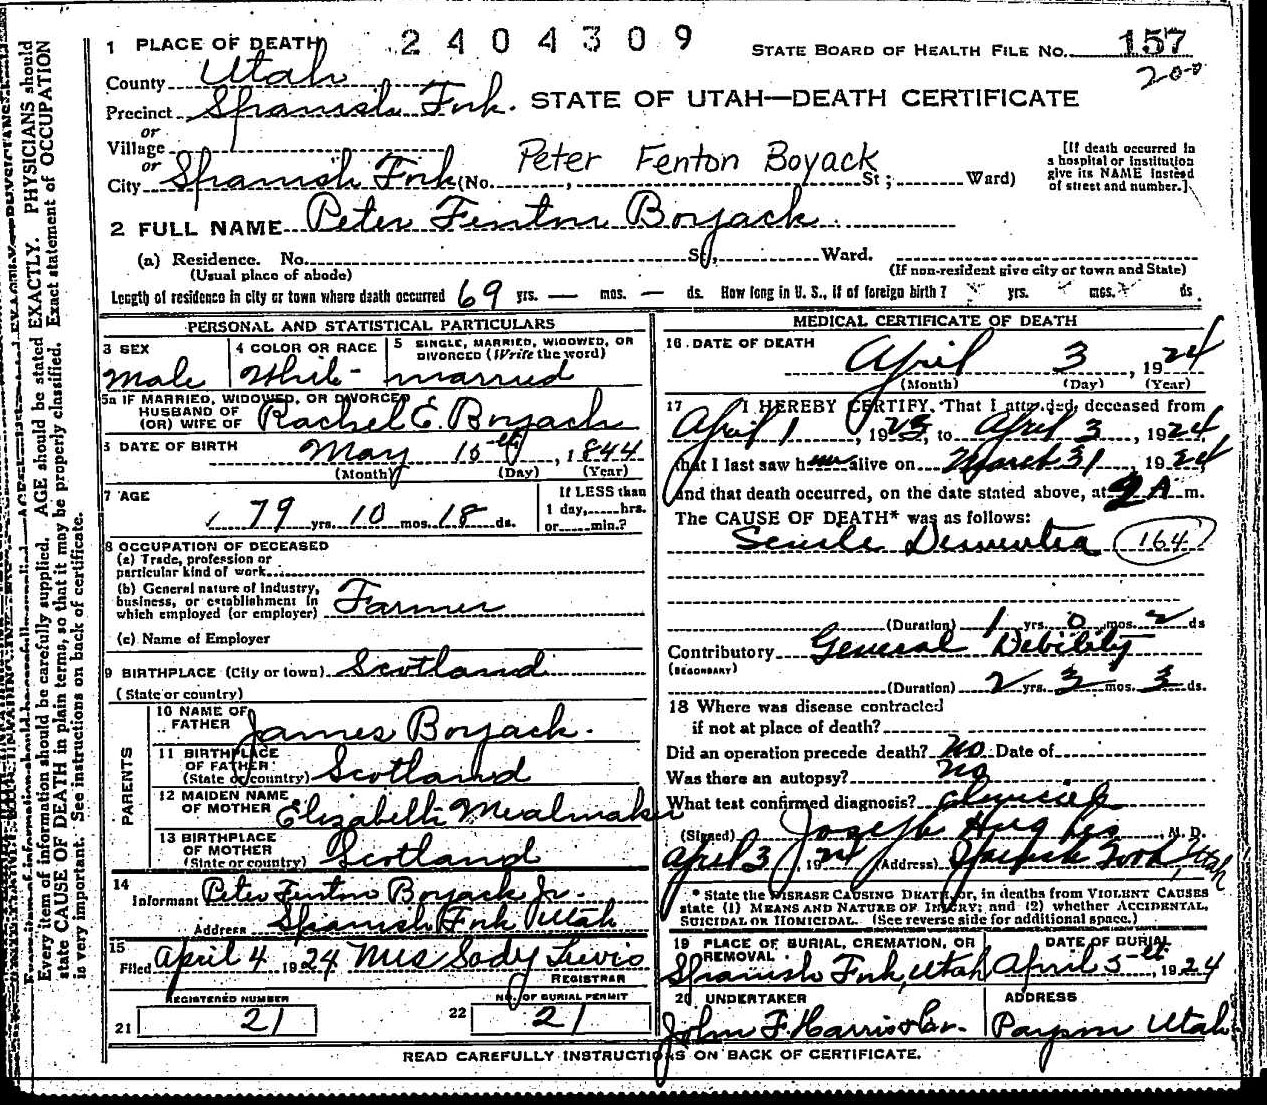 1 PLACE OF DEATH 2404309 STATE BOARD OF HEALTH FILE NO. 157
County Utah 200
Precinct Spanish Fork. STATE OF UTAH—DEATH CERTIFICATE
or
Village
or
City Spanish Fork (No. , St; Ward)
Peter Fenton Boyack
[If death occurred in
a hospital or institution
give its NAME instead
of street and number.]
2 FULL NAME Peter Fenton Boyack
(a) Residence. No. St, Ward.
(Usual place of abode) (If non-resident give city or town and State)
Length of residence in city or town where death occurred 69 yrs. — mos. — ds. How long in U. S., if of foreign birth? yrs. mos. ds.
PERSONAL AND STATISTICAL PARTICULARS
3 SEX
Male
4 COLOR OR RACE
White
5 SINGLE, MARRIED, WIDOWED, OR
DIVORCED (Write the word)
Married
5a IF MARRIED, WIDOWED, OR DIVORCED
HUSBAND OF
(OR) WIFE OF Rachel E. Boyack
6 DATE OF BIRTH May 15th, 1844
(Month) (Day) (Year)
7 AGE
79 yrs. 10 mos. 18 ds.
If LESS than
1 day, hrs.
or min.?
8 OCCUPATION OF DECEASED
(a) Trade, profession or
particular kind of work
(b) General nature of industry,
business, or establishment in
which employed (or employer) Farmer
(c) Name of Employer
9 BIRTHPLACE (City or town) Scotland
(State or country)
PARENTS
10 NAME OF
FATHER James Boyack.
11 BIRTHPLACE
OF FATHER
(State or country) Scotland
12 MAIDEN NAME
OF MOTHER Elizabeth Mealmaker
13 BIRTHPLACE
OF MOTHER
(State or country) Scotland
14
Informant Peter Fenton Boyack Jr.
Address Spanish Fork Utah
15
Filed April 4 1924 Mrs Lewis
REGISTRAR
REGISTERED NUMBER
21 21
NO. OF BURIAL PERMIT
22 21
MEDICAL CERTIFICATE OF DEATH
16 DATE OF DEATH
April 3, 1924
(Month) (Day) (Year)
17 I HEREBY CERTIFY, That I attended deceased from
April 1, 1923, to April 3, 1924
that I last saw him alive on March 31, 1924
and that death occurred, on the date stated above, at 9 A m.
The CAUSE OF DEATH* was as follows:
Senile Dementia 164
(Duration) 1 yrs. 0 mos. 2 ds
Contributory General Debility
(SECONDARY)
(Duration) 2 yrs. 3 mos. 3 ds.
18 Where was disease contracted
if not at place of death?
Did an operation precede death? No Date of
Was there an autopsy? No
What test confirmed diagnosis?
(Signed) Joseph Hughes, M. D.
April 3, 1924 (Address) Spanish Fork, Utah
* State the DISEASE CAUSING DEATH, or, in deaths from VIOLENT CAUSES
state (1) MEANS AND NATURE OF INJURY; and (2) whether ACCIDENTAL,
SUICIDAL OR HOMICIDAL. (See reverse side for additional space.)
19 PLACE OF BURIAL, CREMATION, OR
REMOVAL
Spanish Fork, Utah
DATE OF BURIAL
April 5th, 1924
20 UNDERTAKER
John F. Harrison.
ADDRESS
Payson Utah
READ CAREFULLY INSTRUCTIONS ON BACK OF CERTIFICATE.
Every item of information should be carefully supplied. AGE should be stated EXACTLY. PHYSICIANS should
state CAUSE OF DEATH in plain terms, so that it may be properly classified. Exact statement of OCCUPATION
is very important. See instructions on back of certificate.